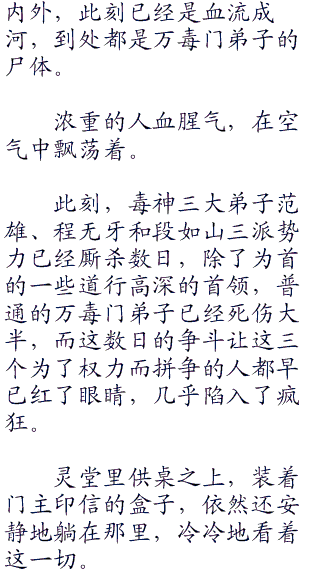 内外，此刻已经是血流成
河，到处都是万毒门弟子的
尸体。
浓重的人血腥气，在空
气中飘荡着。
此刻，毒神三大弟子范
雄、程无牙和段如山三派势
力已经厮杀数日，除了为首
的一些道行高深的首领，普
通的万毒门弟子已经死伤大
半，而这数日的争斗让这三
个为了权力而拼争的人都早
已红了眼睛，几乎陷入了疯
狂。
灵堂里供桌之上，装着
门主印信的盒子，依然还安
静地躺在那里，冷冷地看着
这一切。